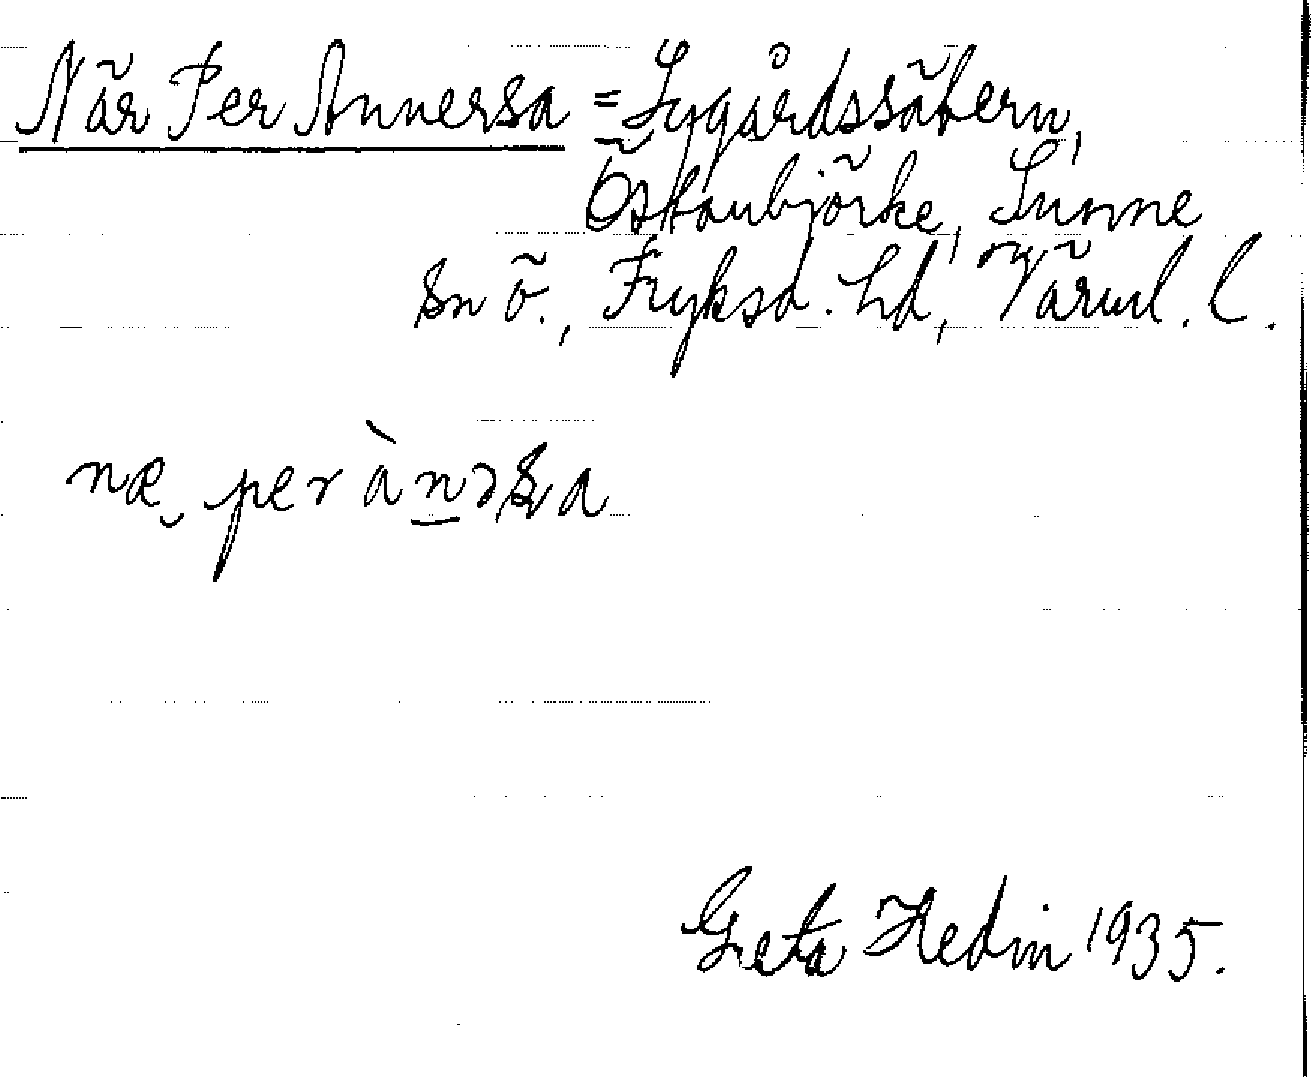 När Per Annersa = Lygårdssätern,
Östanbjörke, Sunne
sn ö., Fryksd. hd, Värml. l.
næ per àn̲əʂa
Greta Hedin 1935.